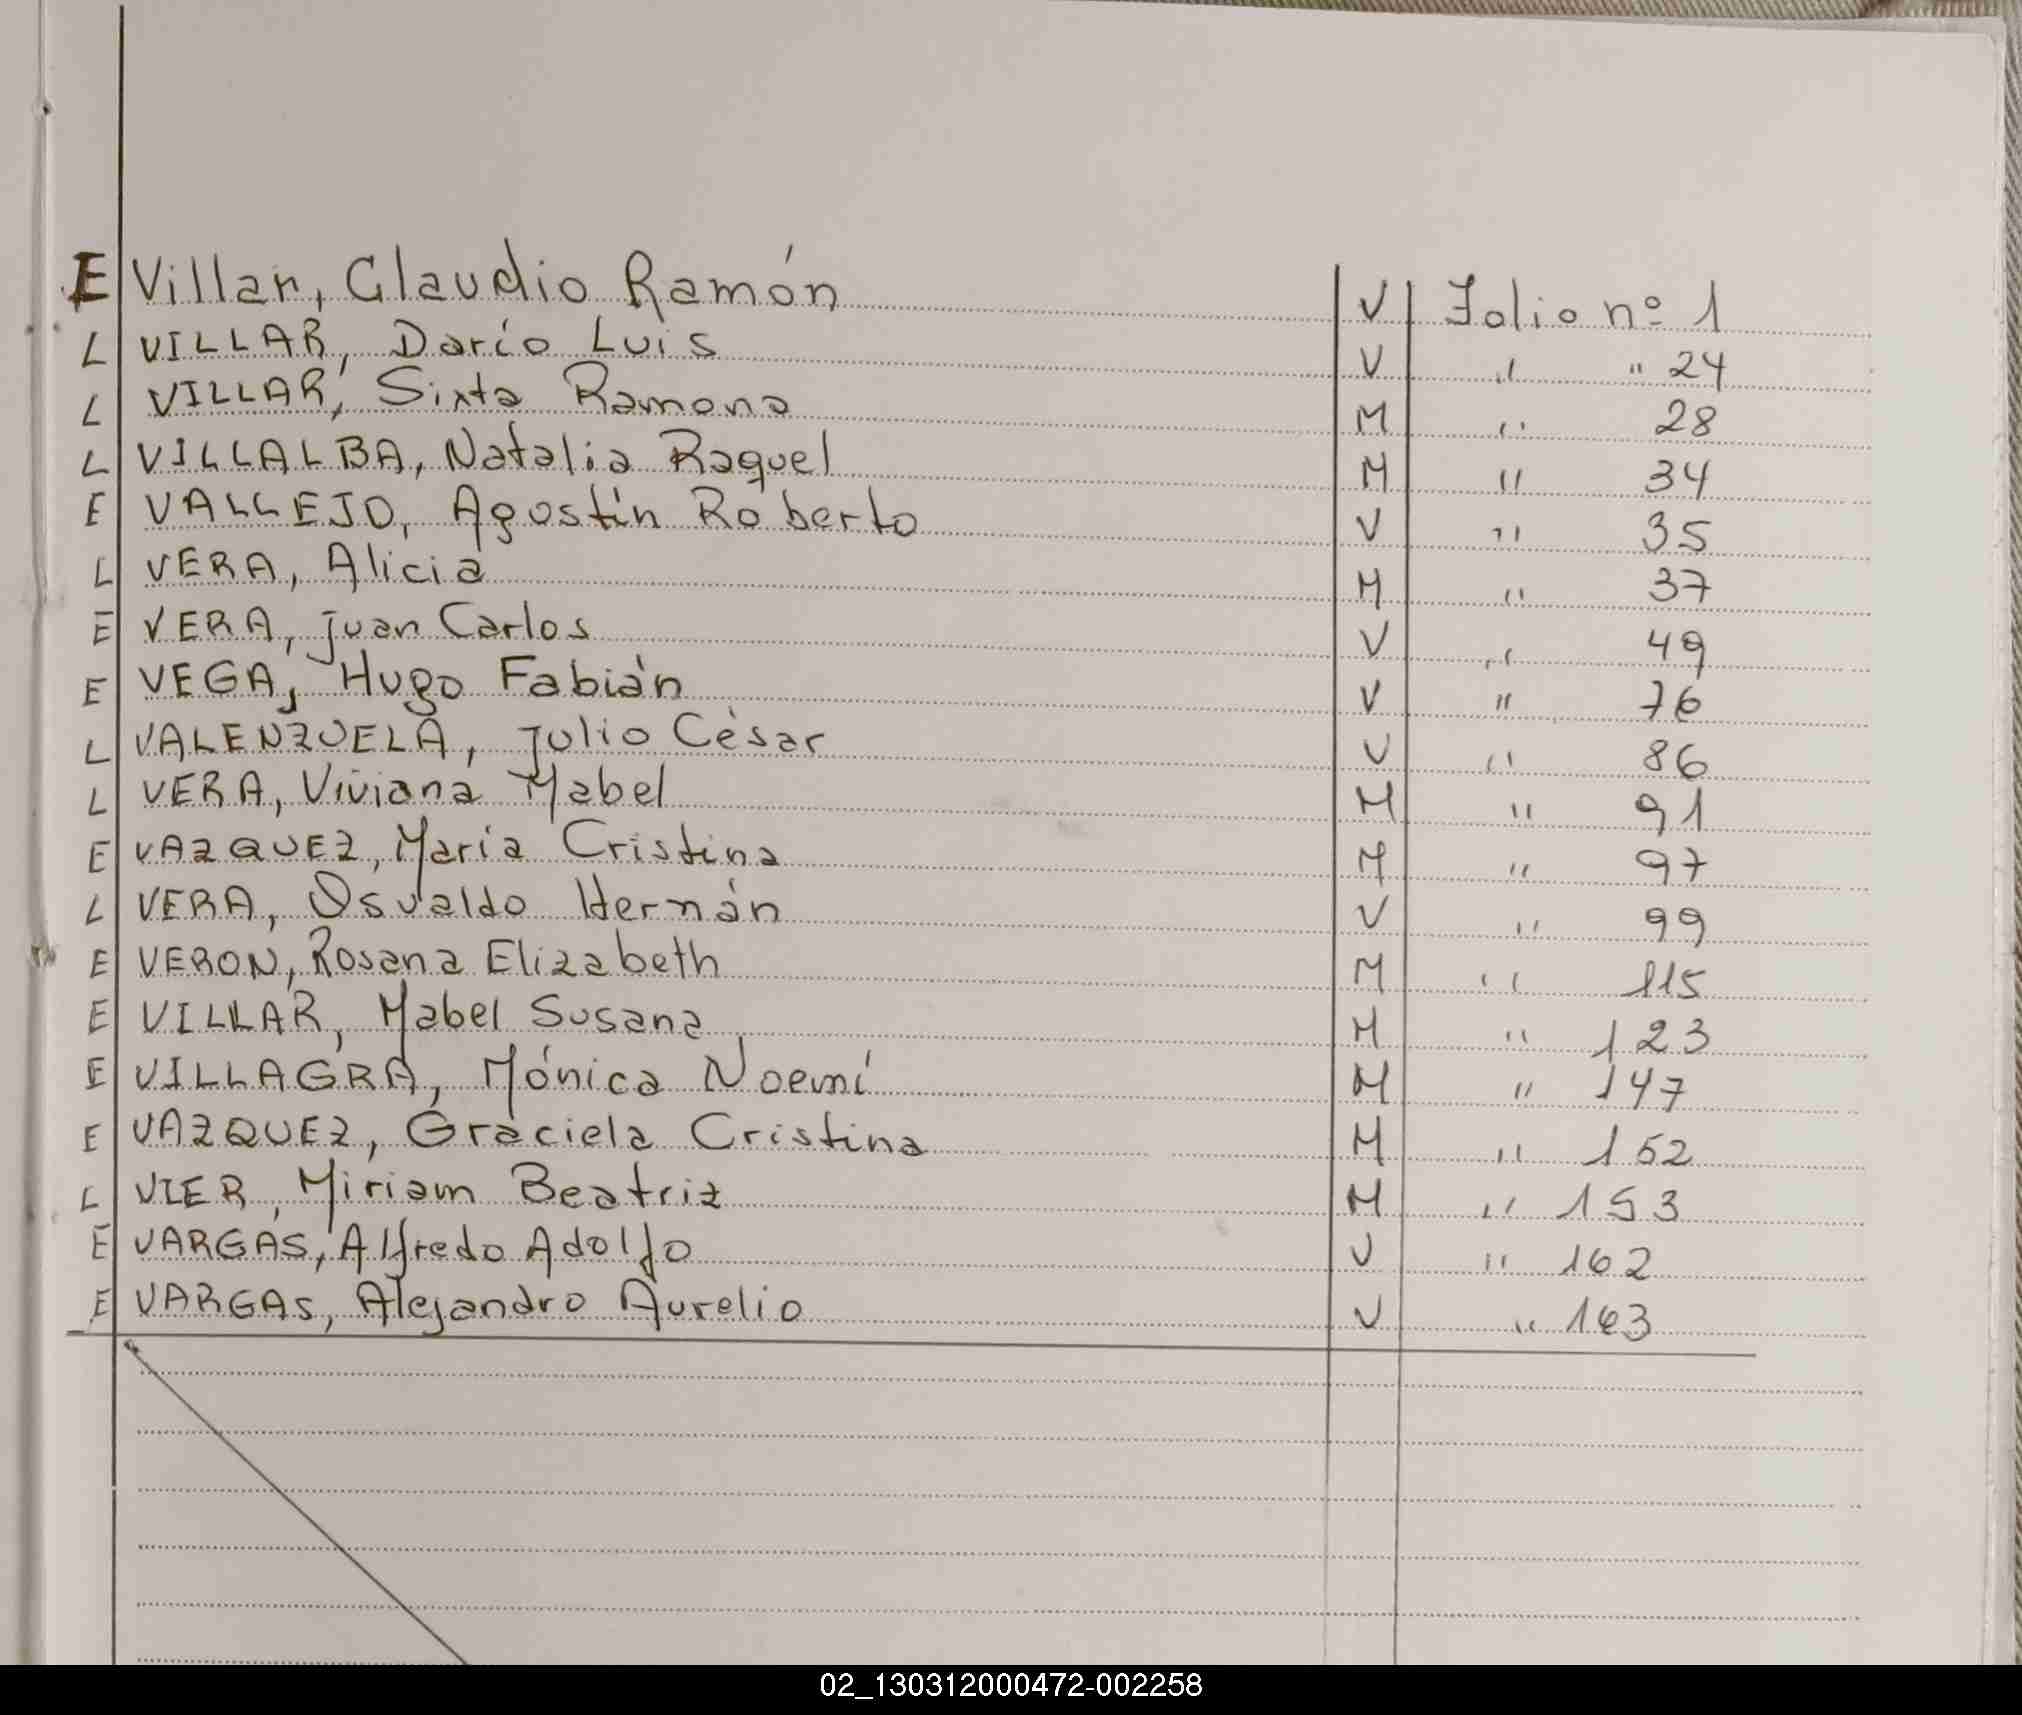 E Villar, Claudio Ramón V Folio nº 1
L VILLAR, Darío Luis V " " 24
L VILLAR, Sixta Ramona M " 28
L VILLALBA, Natalia Raquel M " 34
E VALLEJO, Agustín Roberto V " 35
L VERA, Alicia M " 37
E VERA, Juan Carlos V " 49
E VEGA, Hugo Fabián V " 76
L VALENZUELA, Julio César V " 86
L VERA, Viviana Mabel M " 91
E VAZQUEZ, María Cristina M " 97
L VERA, Osvaldo Hernán V " 99
E VERON, Rosana Elizabeth M " 115
E VILLAR, Mabel Susana M " 123
E VILLAGRA, Mónica Noemí M " 147
E VAZQUEZ, Graciela Cristina M " 152
L VIER, Miriam Beatriz M " 153
E VARGAS, Alfredo Adolfo V " 162
E VARGAS, Alejandro Aurelio V " 163
02_130312000472-002258